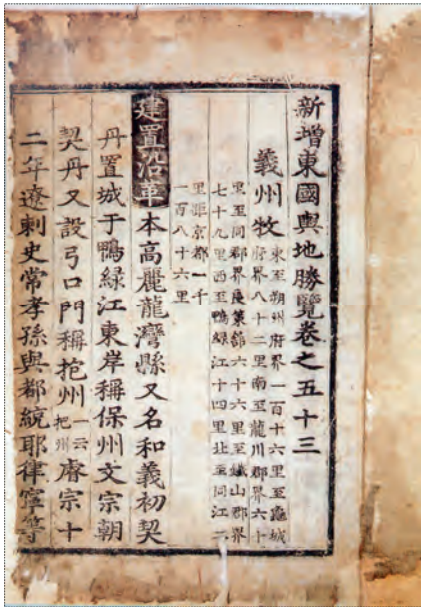 新增東國輿地勝覽卷之五十三
義州牧
東至朔州府界一百十六里至龜城
府界八十二里南至龍川郡界六十
里至同郡界六十六里至鐵山郡界
七十九里西至鴨綠江十四里北至同江二
里距京都一千
一百八十六里
建置沿革本高麗龍灣縣又名和義初契
丹置城于鴨綠江東岸稱保州文宗朝
契丹又設弓口門稱抱州一云把州睿宗十
二年遼刺史常孝孫與都統耶律寧等